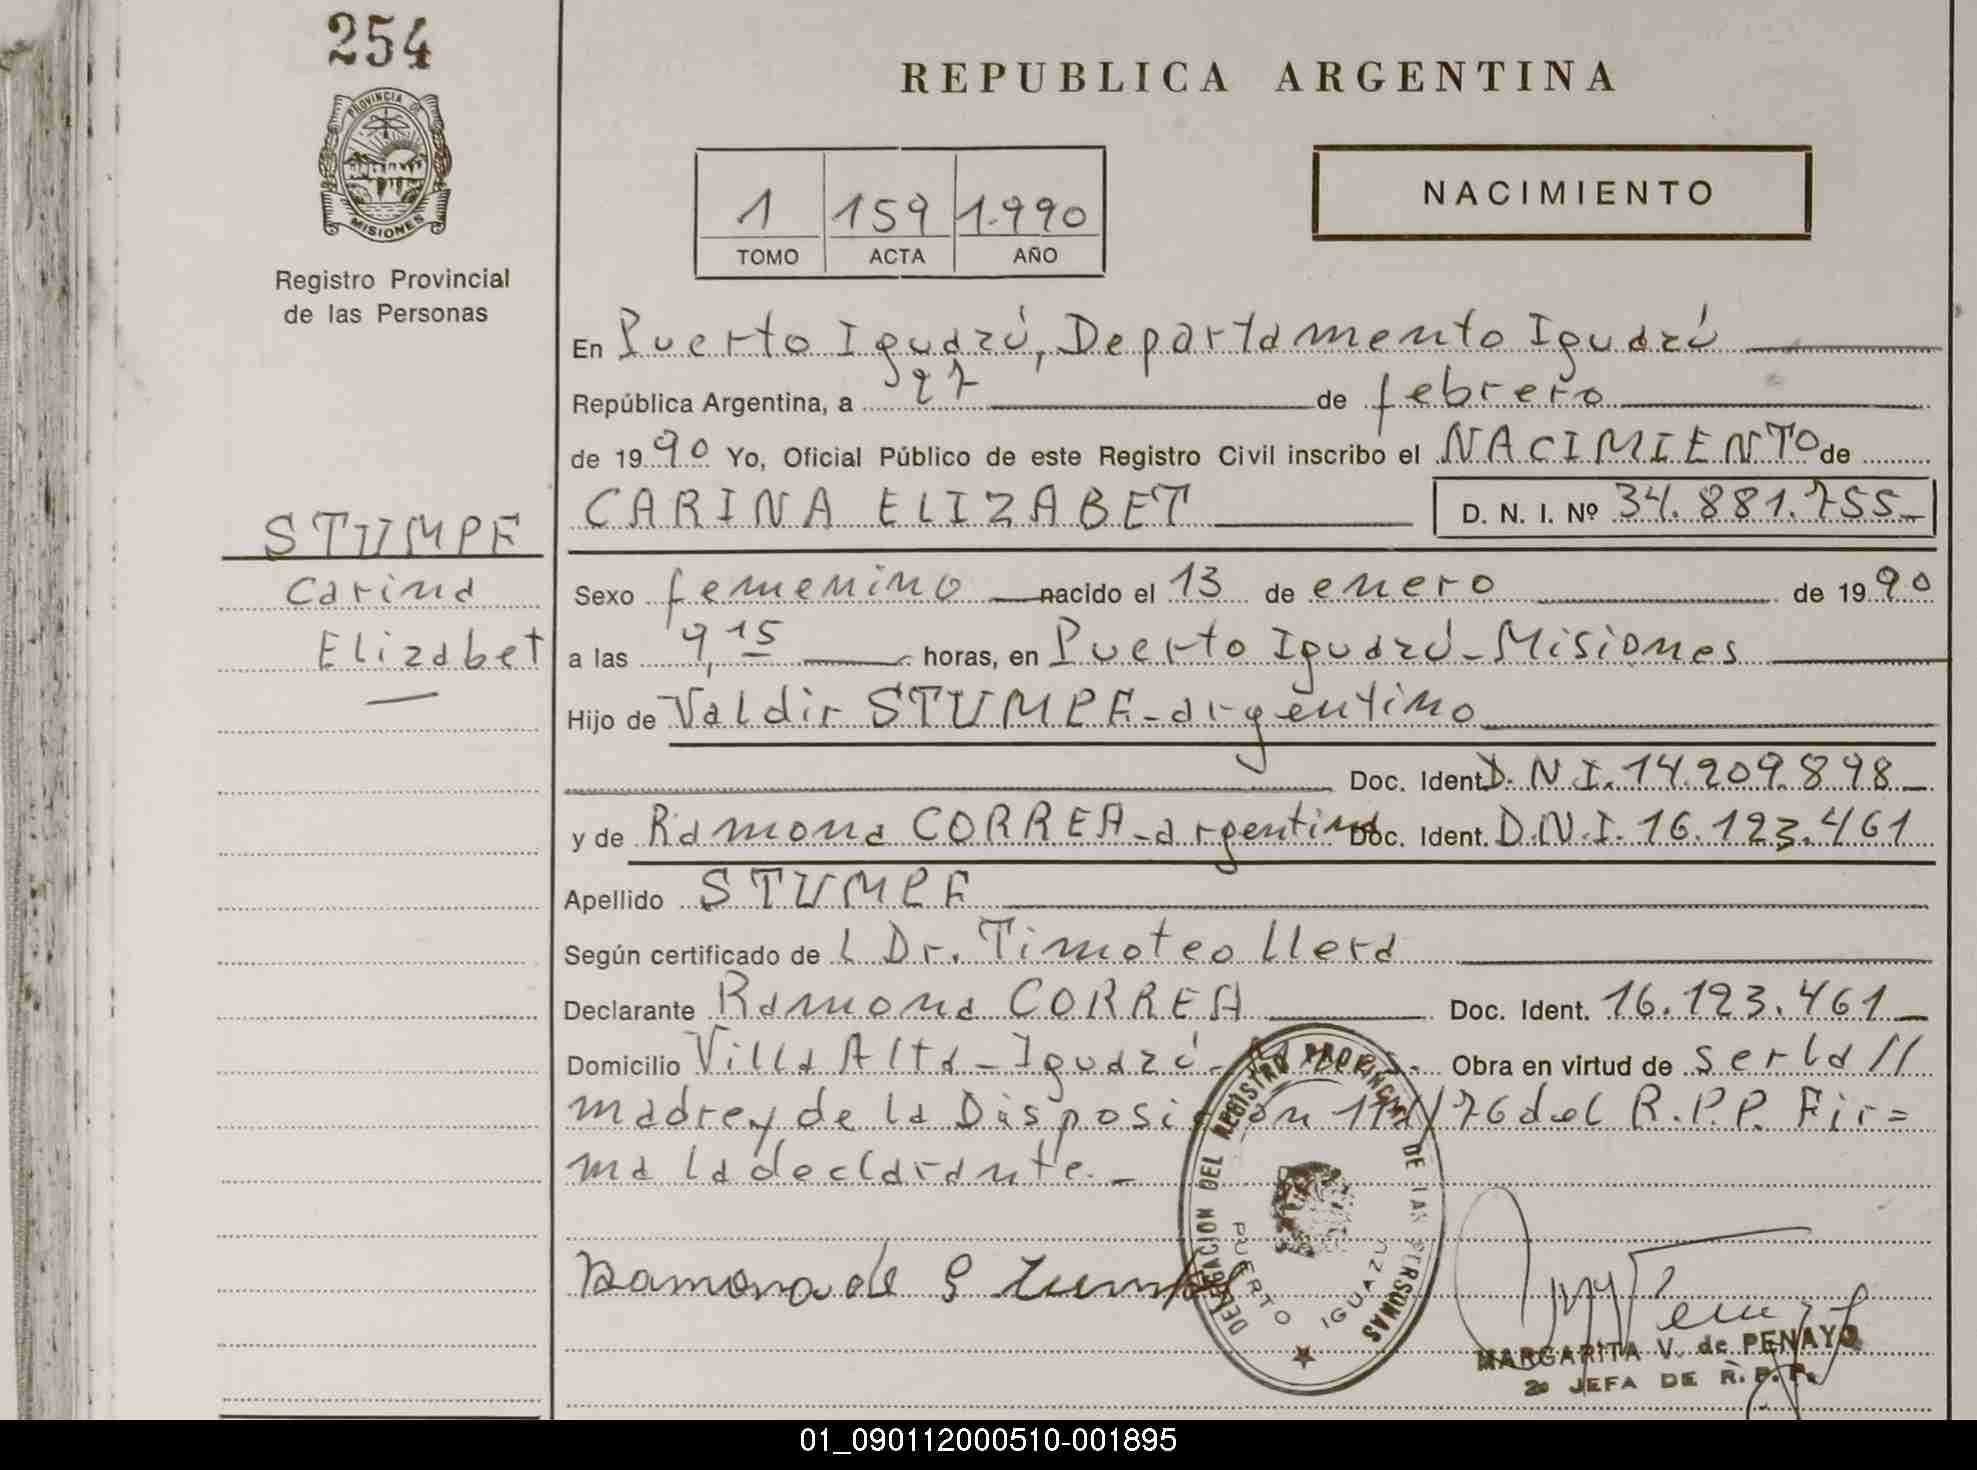 254
PROVINCIA DE
MISIONES
Registro Provincial
de las Personas
REPUBLICA ARGENTINA
1 159 1.990
TOMO ACTA AÑO
NACIMIENTO
En Puerto Iguazú, Departamento Iguazú
República Argentina, a 27 de febrero
de 1990 Yo, Oficial Público de este Registro Civil inscribo el NACIMIENTO de
CARINA ELIZABET D. N. I. Nº 34.881.755
STUMPF
Carina
Elizabet
Sexo femenino nacido el 13 de enero de 1990
a las 9,15 horas, en Puerto Iguazú - Misiones
Hijo de Valdir STUMPF - argentino
Doc. Ident. D.N.I. 14.209.898
y de Ramona CORREA - argentina Doc. Ident. D.N.I. 16.123.461
Apellido STUMPF
Según certificado de l Dr. Timoteo Llera
Declarante Ramona CORREA Doc. Ident. 16.123.461
Domicilio Villa Alta - Iguazú - Obra en virtud de ser la //
madre y de la Disposición 11/76 del R.P.P. Fir=
ma la declarante. -
Ramona de Stumpf
DELEGACION DEL REGISTRO PROVINCIAL DE LAS PERSONAS
PUERTO IGUAZU
MARGARITA V. de PENAYO
2a JEFA DE R. P. P.
01_090112000510-001895